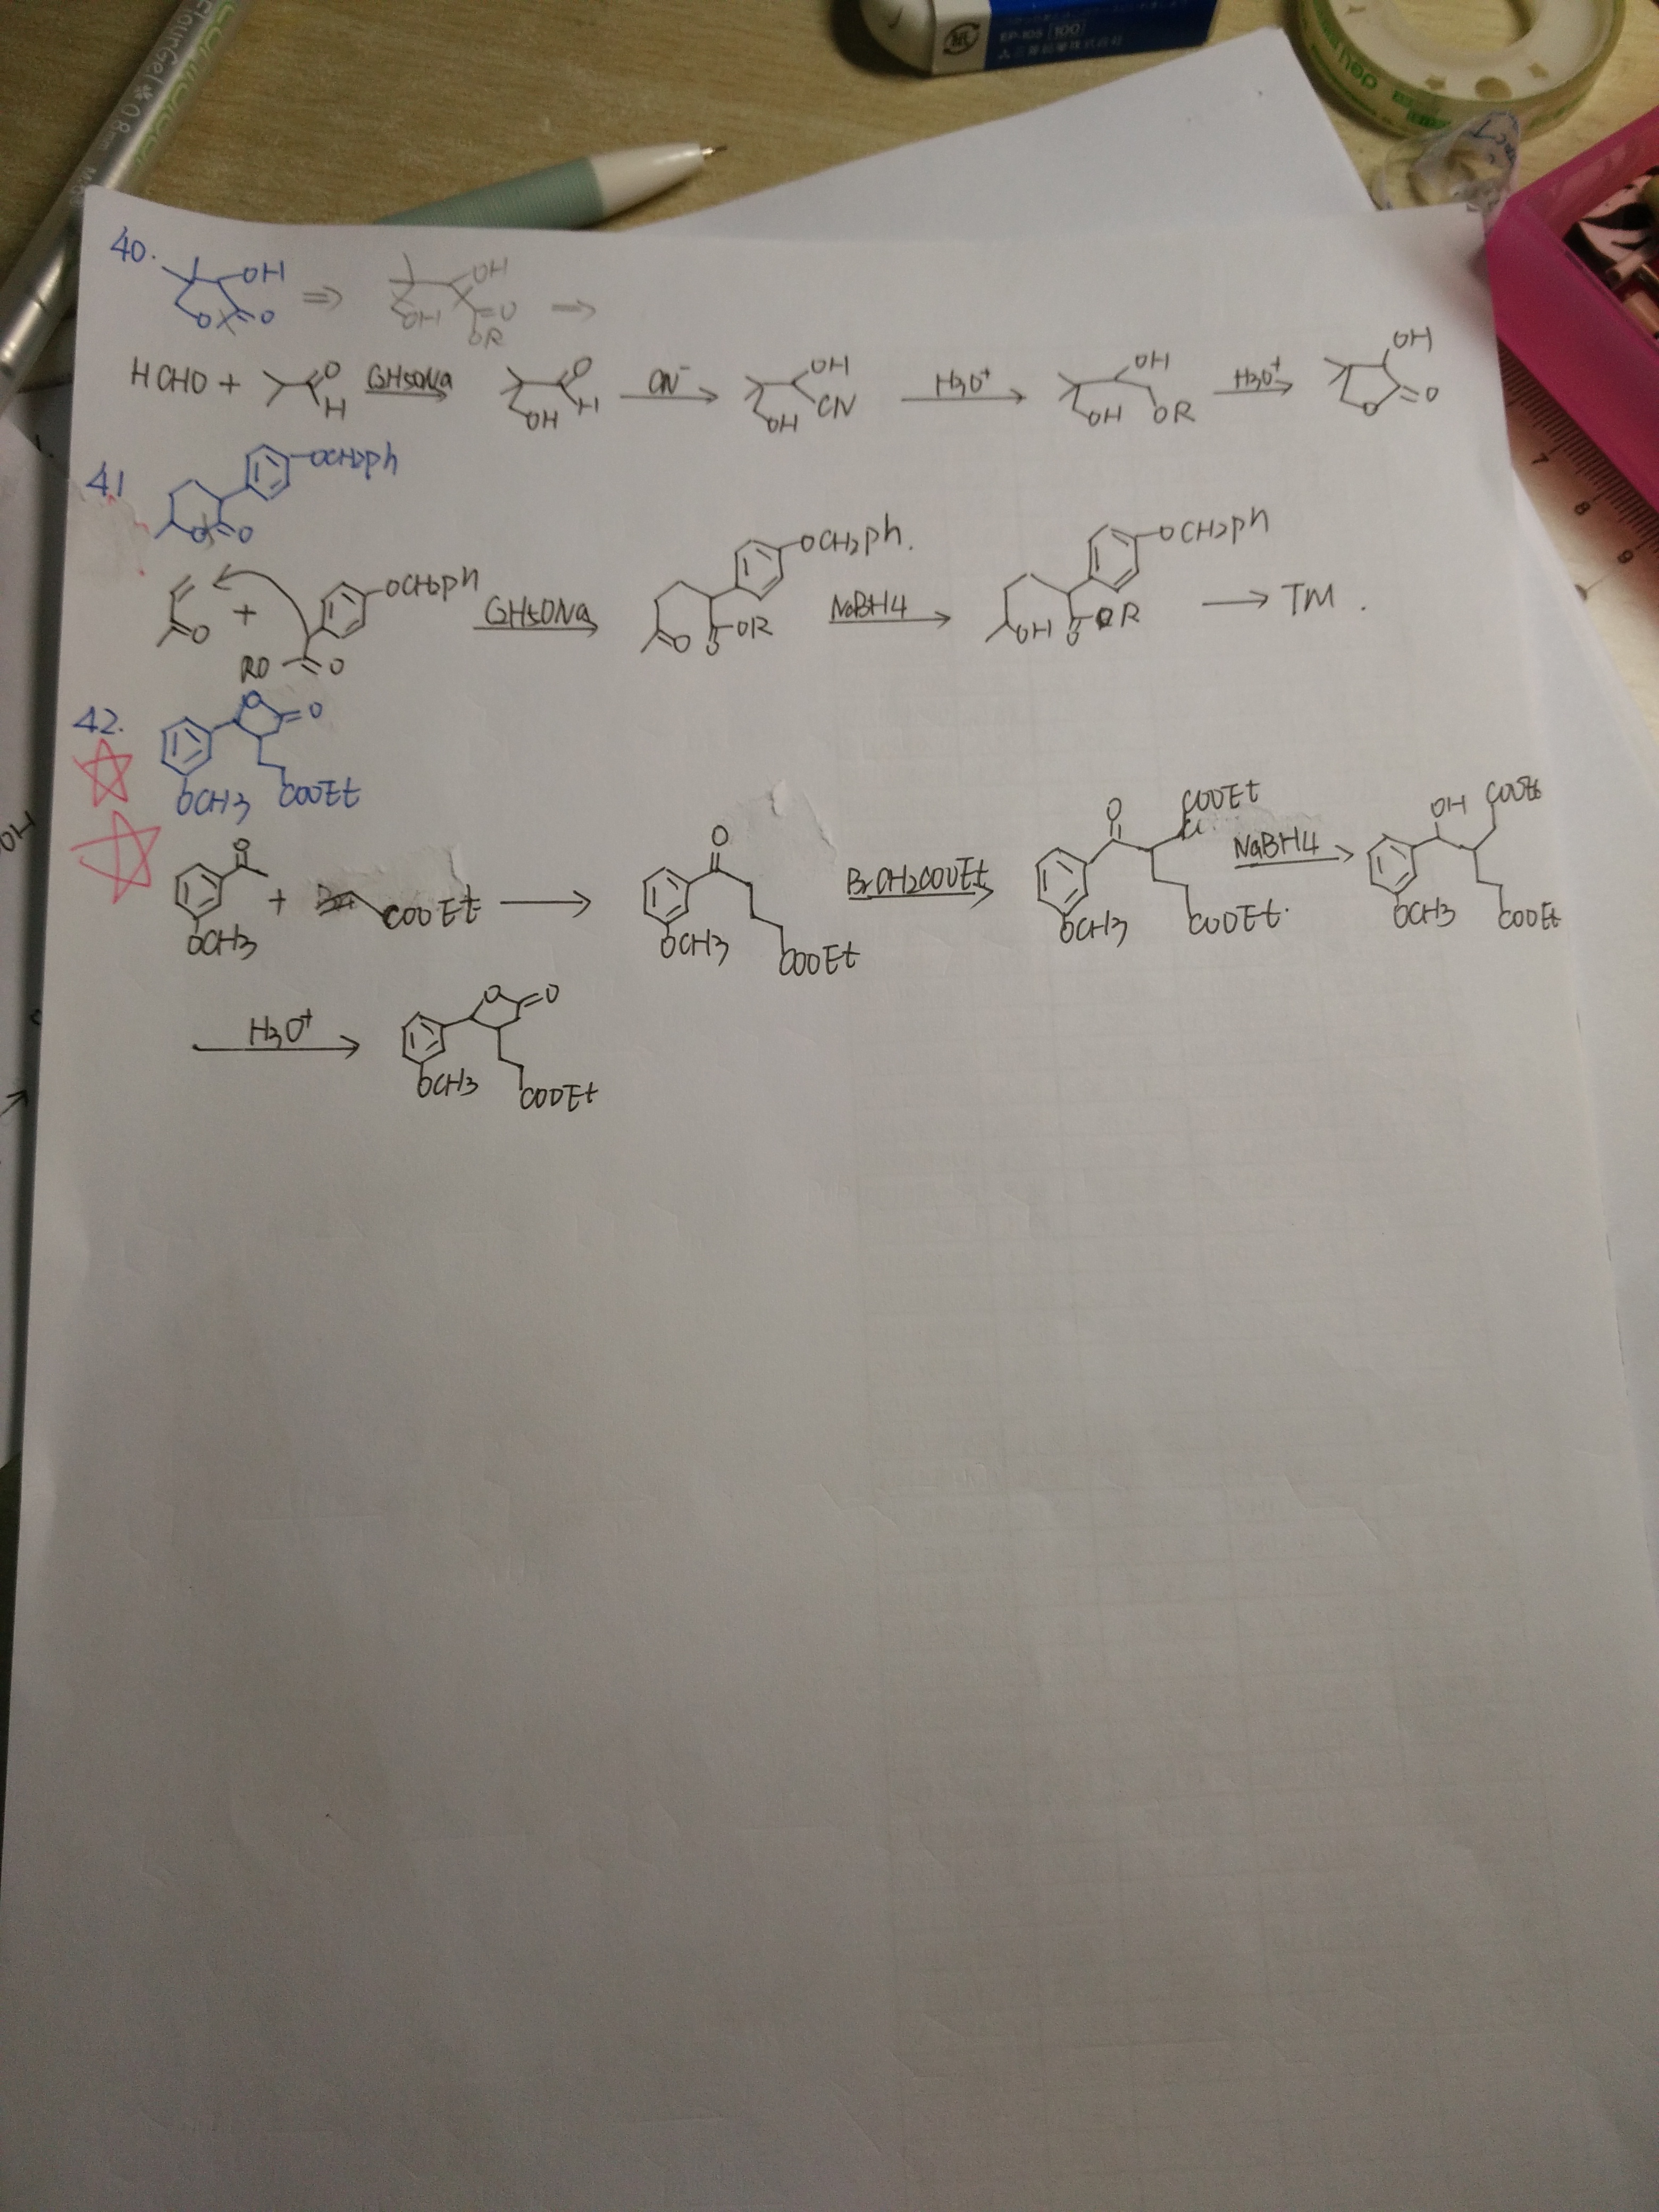 EP-105 100
三菱鉛筆株式会社
deli
0.8mm
40.
OH
O O
⇒
OH
OH O
OR
⇒
HCHO + O H C2H5ONa O OH H CN⁻ OH OH CN H3O⁺ OH OH OR H3O⁺ OH O O
41
OCH2ph
O O
O + OCH2ph RO O C2H5ONa OCH2ph. O O OR NaBH4 OCH2ph OH O OR → TM.
42.
O O
OCH3 COOEt
O OCH3 + COOEt → O OCH3 COOEt BrCH2COOEt O COOEt OCH3 COOEt. NaBH4 OH COOEt OCH3 COOEt
H3O⁺ O O OCH3 COOEt
OH
7
8
9